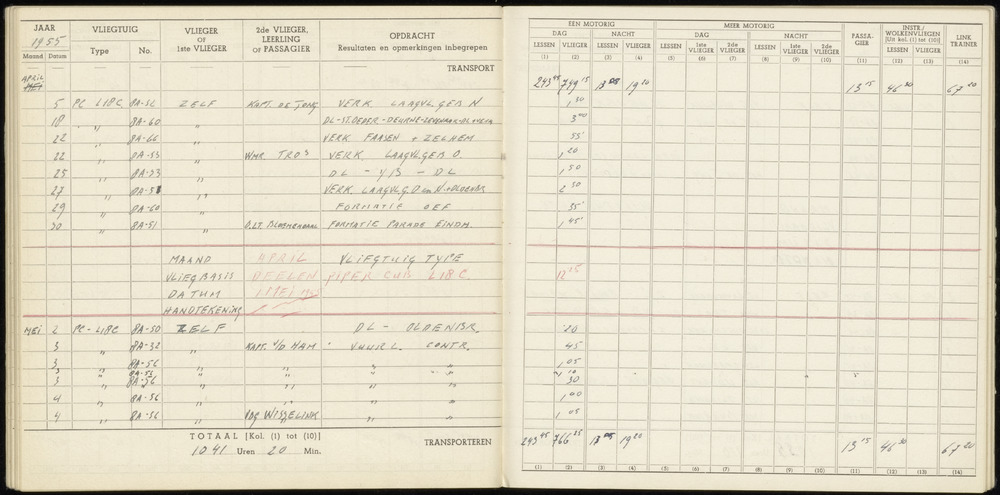 JAAR VLIEGTUIG VLIEGER OF 1ste VLIEGER 2de VLIEGER, LEERLING OF PASSAGIER OPDRACHT Resultaten en opmerkingen inbegrepen
1955
Maand Datum Type No.
TRANSPORT
APRIL
MEI
5 PC L18C 8A-52 ZELF KAPT. DE JONG VERK LAAGVLGEB N
18 " " 8A-60 "
22 " 8A-66 " VERK FAASEN + ZELHEM
22 " 8A-53 " WMR. TROS VERK. LAAGVLGEB O.
25 " 8A-33 " DL - YB - DL
27 " 8A-51 " VERK. LAAGVLG
29 " 8A-60 " FORMATIE OEF
30 " 8A-51 " O.LT. BLOEMENDAAL FORMATIE PARADE EINDH.
MAAND APRIL VLIEGTUIG TYPE
VLIEGBASIS DEELEN PIPER CUB L18C
DATUM 1 MEI
HANDTEKENING
MEI 2 PC-L18C 8A-50 ZELF DL - OLDENBR.
3 " 8A-32 " KAPT. V/D HAM VUURL. CONTR.
3 " 8A-56 " " " "
3 " 8A-56 " " " "
3 " 8A-56 " " " "
4 " 8A-56 " " " "
4 " 8A-56 " WISSELINK " "
TOTAAL [Kol. (1) tot (10)] TRANSPORTEREN
1041 Uren 20 Min.
EEN MOTORIG MEER MOTORIG PASSA-GIER INSTR./WOLKENVLIEGEN [Uit kol. (1) tot (10)] LINK TRAINER
DAG NACHT DAG NACHT
LESSEN VLIEGER LESSEN VLIEGER LESSEN 1ste VLIEGER 2de VLIEGER LESSEN 1ste VLIEGER 2de VLIEGER LESSEN VLIEGER
(1) (2) (3) (4) (5) (6) (7) (8) (9) (10) (11) (12) (13) (14)
243 45 749 15 13 05 19 20 13 15 46 30 67 20
1 30
3 00
55
1 20
1 50
2 30
35
1 45
17 25
20
45
1 05
10
30
1 00
1 05
243 45 766 25 13 05 19 20 13 15 46 30 67 20
(1) (2) (3) (4) (5) (6) (7) (8) (9) (10) (11) (12) (13) (14)